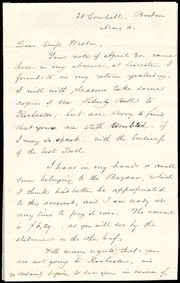 21 Cornhill, Boston
May 4.
Dear Miss Weston,
Your note of April 30. came
here in my absence, at Lincoln. I
found it on my return yesterday.
I will with pleasure take some
copies of the Liberty Bell to
Rochester, but am sorry to find
that you are still troubled, if
I may so speak, with the business
of the last Bell.
I have in my hands a small
sum belonging to the Bazaar, which
I think had better be appropriated
to this account, and I am ready at
any time to pay it over. The amount
is as you will see by the
statement on the other leaf.
With many regrets that you
are not going to Rochester, and
hope to see you in course of